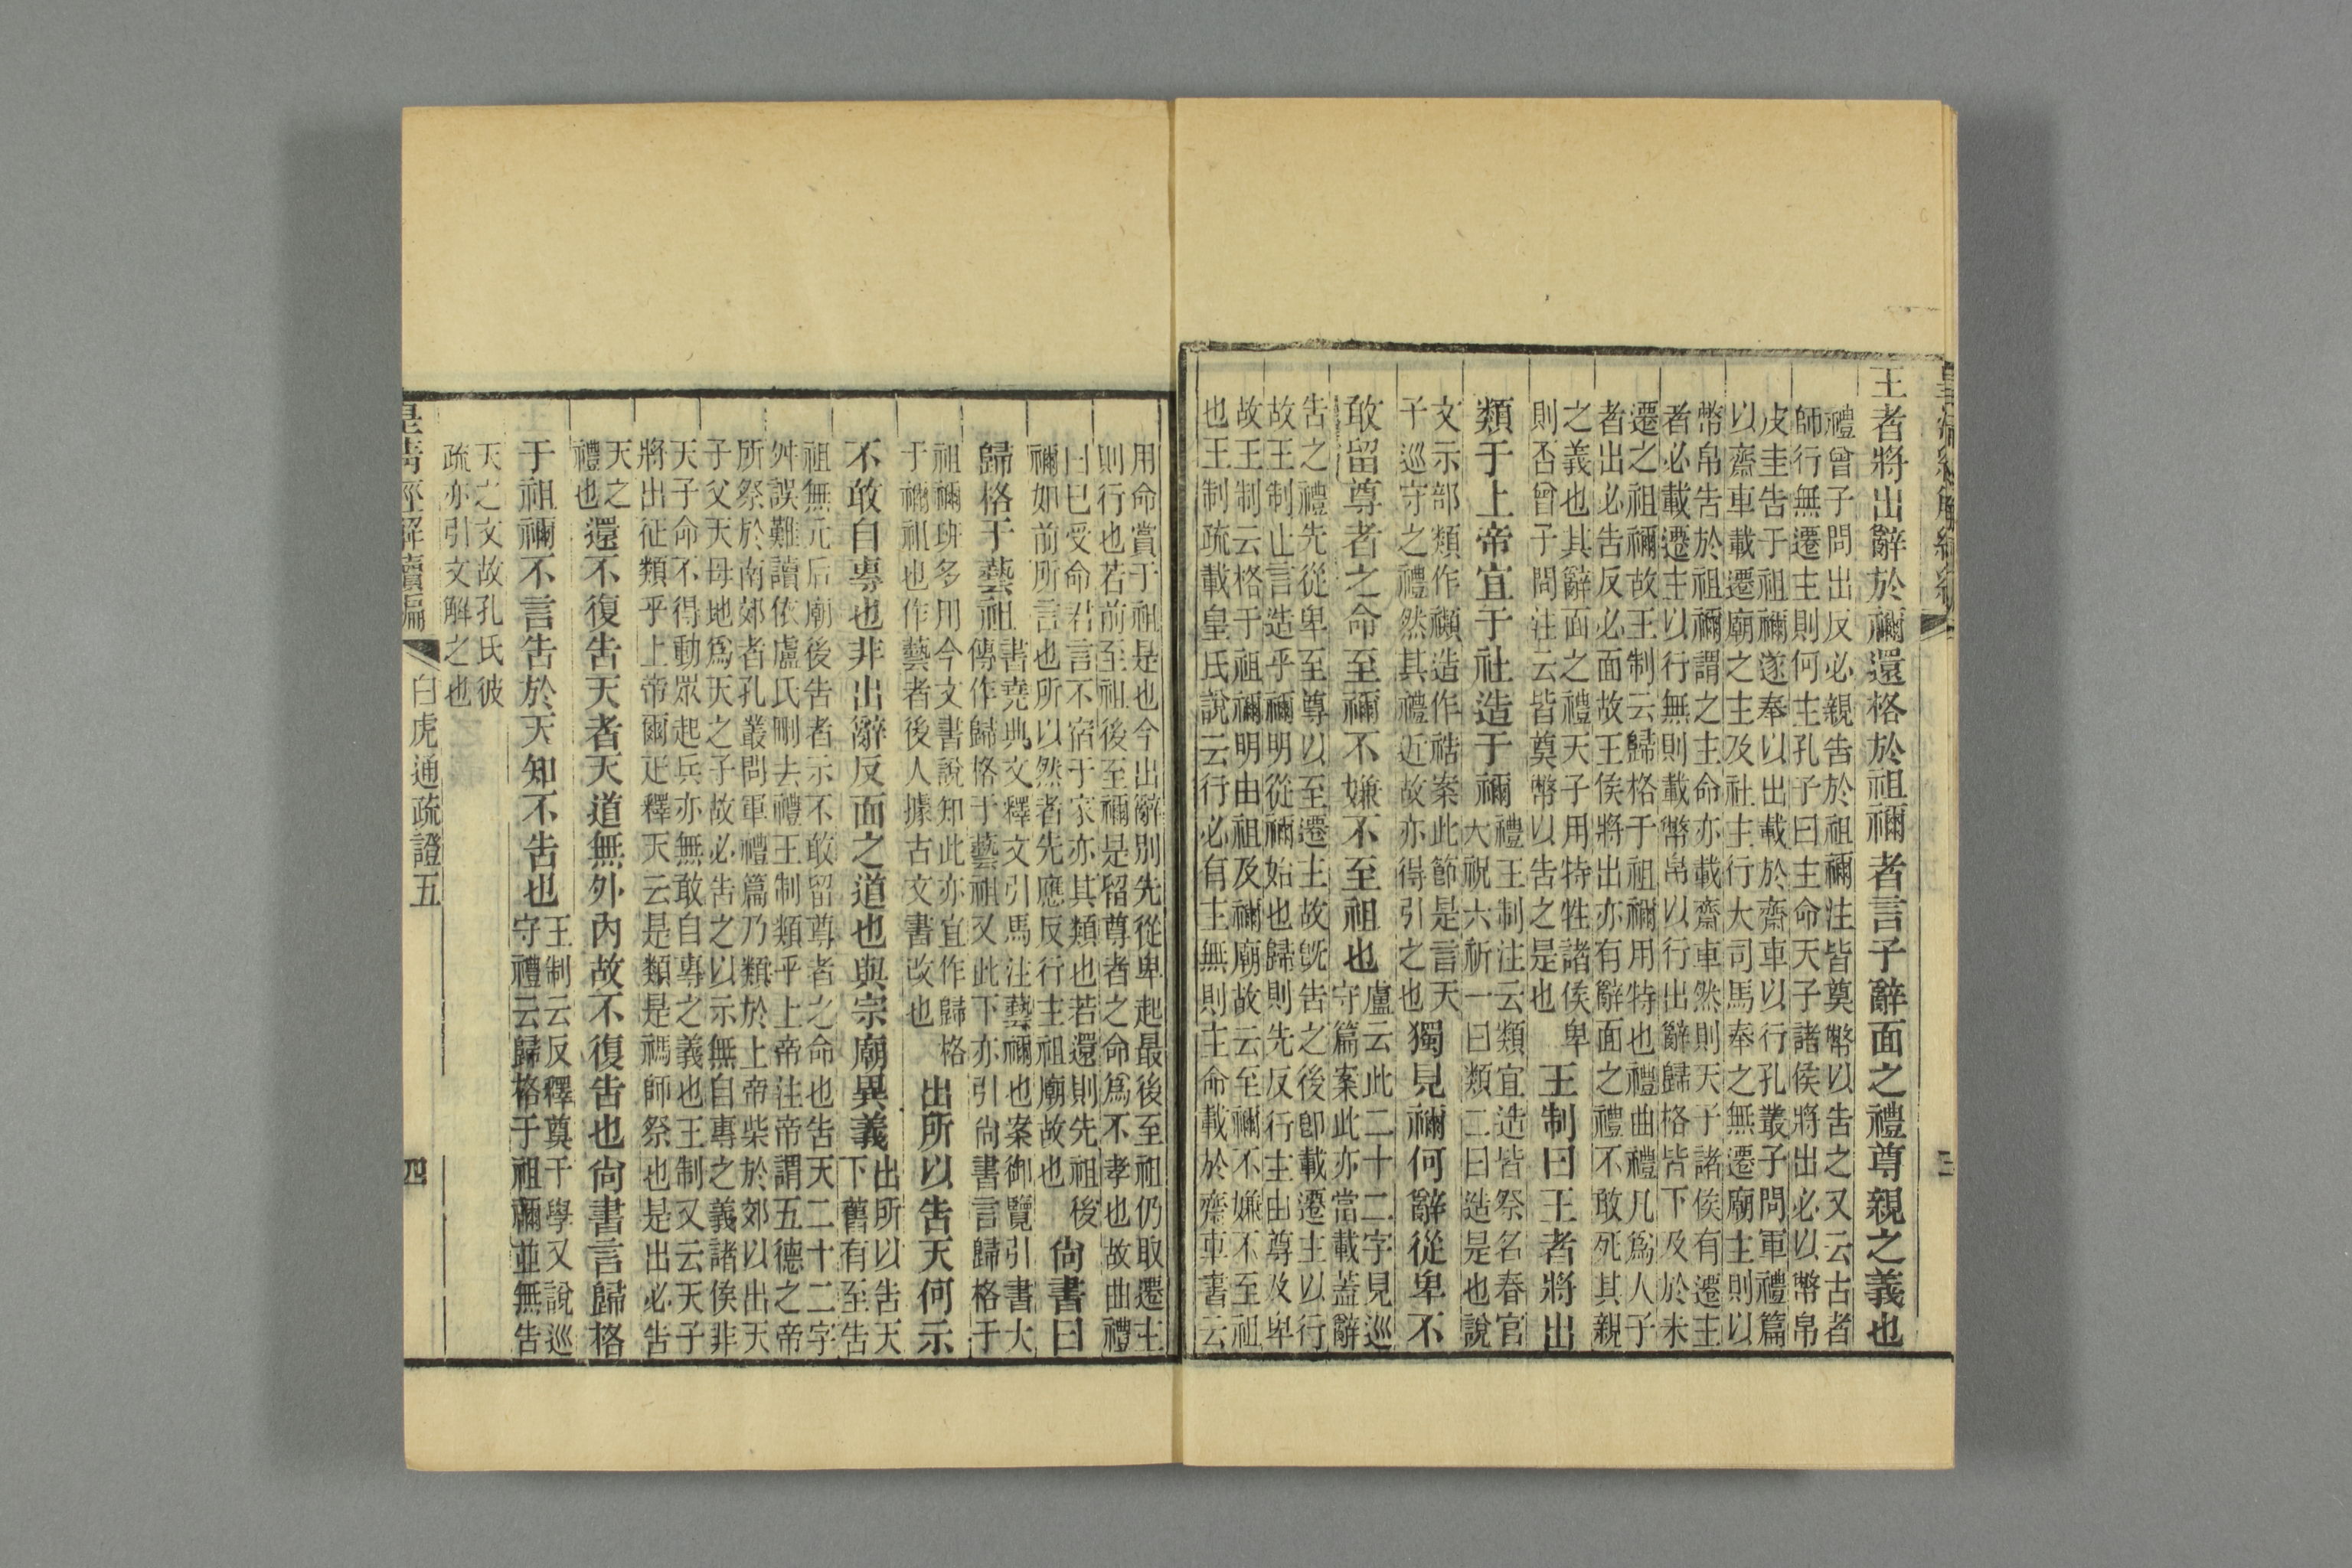 皇淸經解續編
三
王者將出辭於禰還格於祖禰者言子辭面之禮尊親之義也
禮曾子問出反必親告於祖禰注皆奠幣以告之又云古者
師行無遷主則何主孔子曰主命天子諸侯將出必以幣帛
皮圭告于祖禰遂奉以出載於齋車以行孔叢子問軍禮篇
以齋車載遷廟之主及社主行大司馬奉之無遷廟主則以
幣帛告於祖禰謂之主命亦載齋車然則天子諸侯有遷主
者必載遷主以行無則載幣帛以行出辭歸格皆下及於未
遷之祖禰故王制云歸格于祖禰用特也禮曲禮凡爲人子
者出必告反必面故王侯將出亦有辭面之禮不敢死其親
之義也其辭面之禮天子用特牲諸侯卑
則否曾子問注云皆奠幣以告之是也
王制曰王者將出
類于上帝宜于社造于禰
禮王制注云類宜造皆祭名春官
大祝六祈一曰類二曰造是也說
文示部類作禷造作祰案此節是言天
子巡守之禮然其禮近故亦得引之也
獨見禰何辭從卑不
敢留尊者之命至禰不嫌不至祖也
盧云此二十二字見巡
守篇案此亦當載蓋辭
告之禮先從卑至尊以至遷主故旣告之後卽載遷主以行
故王制止言造乎禰明從禰始也歸則先反行主由尊及卑
故王制云格于祖禰明由祖及禰廟故云至禰不嫌不至祖
也王制疏載皇氏說云行必有主無則主命載於齋車書云
用命賞于祖是也今出辭別先從卑起最後至祖仍取遷主
則行也若前至祖後至禰是留尊者之命爲不孝也故曲禮
曰已受命君言不宿于家亦其類也若還則先祖後
禰如前所言也所以然者先應反行主祖廟故也
尙書曰
歸格于藝祖
書堯典文釋文引馬注藝禰也案御覽引書大
傳作歸格于藝祖又此下亦引尙書言歸格于
祖禰班多用今文書說知此亦宜作歸格
于禰祖也作藝者後人據古文書改也
出所以告天何示
不敢自專也非出辭反面之道也與宗廟異義
出所以告天
下舊有至告
祖無元后廟後告者示不敢留尊者之命也告天二十二字
舛誤難讀依盧氏刪去禮王制類乎上帝注帝謂五德之帝
所祭於南郊者孔叢問軍禮篇乃類於上帝柴於郊以出天
子父天母地爲天之子故必告之以示無自專之義諸侯非
天子命不得動眾起兵亦無敢自專之義也王制又云天子
將出征類乎上帝爾疋釋天云是類是禡師祭也是出必告
天之
禮也
還不復告天者天道無外內故不復告也尙書言歸格
于祖禰不言告於天知不告也
王制云反釋奠于學又說巡
守禮云歸格于祖禰並無告
天之文故孔氏彼
疏亦引文解之也
皇淸經解續編
白虎通疏證五
四